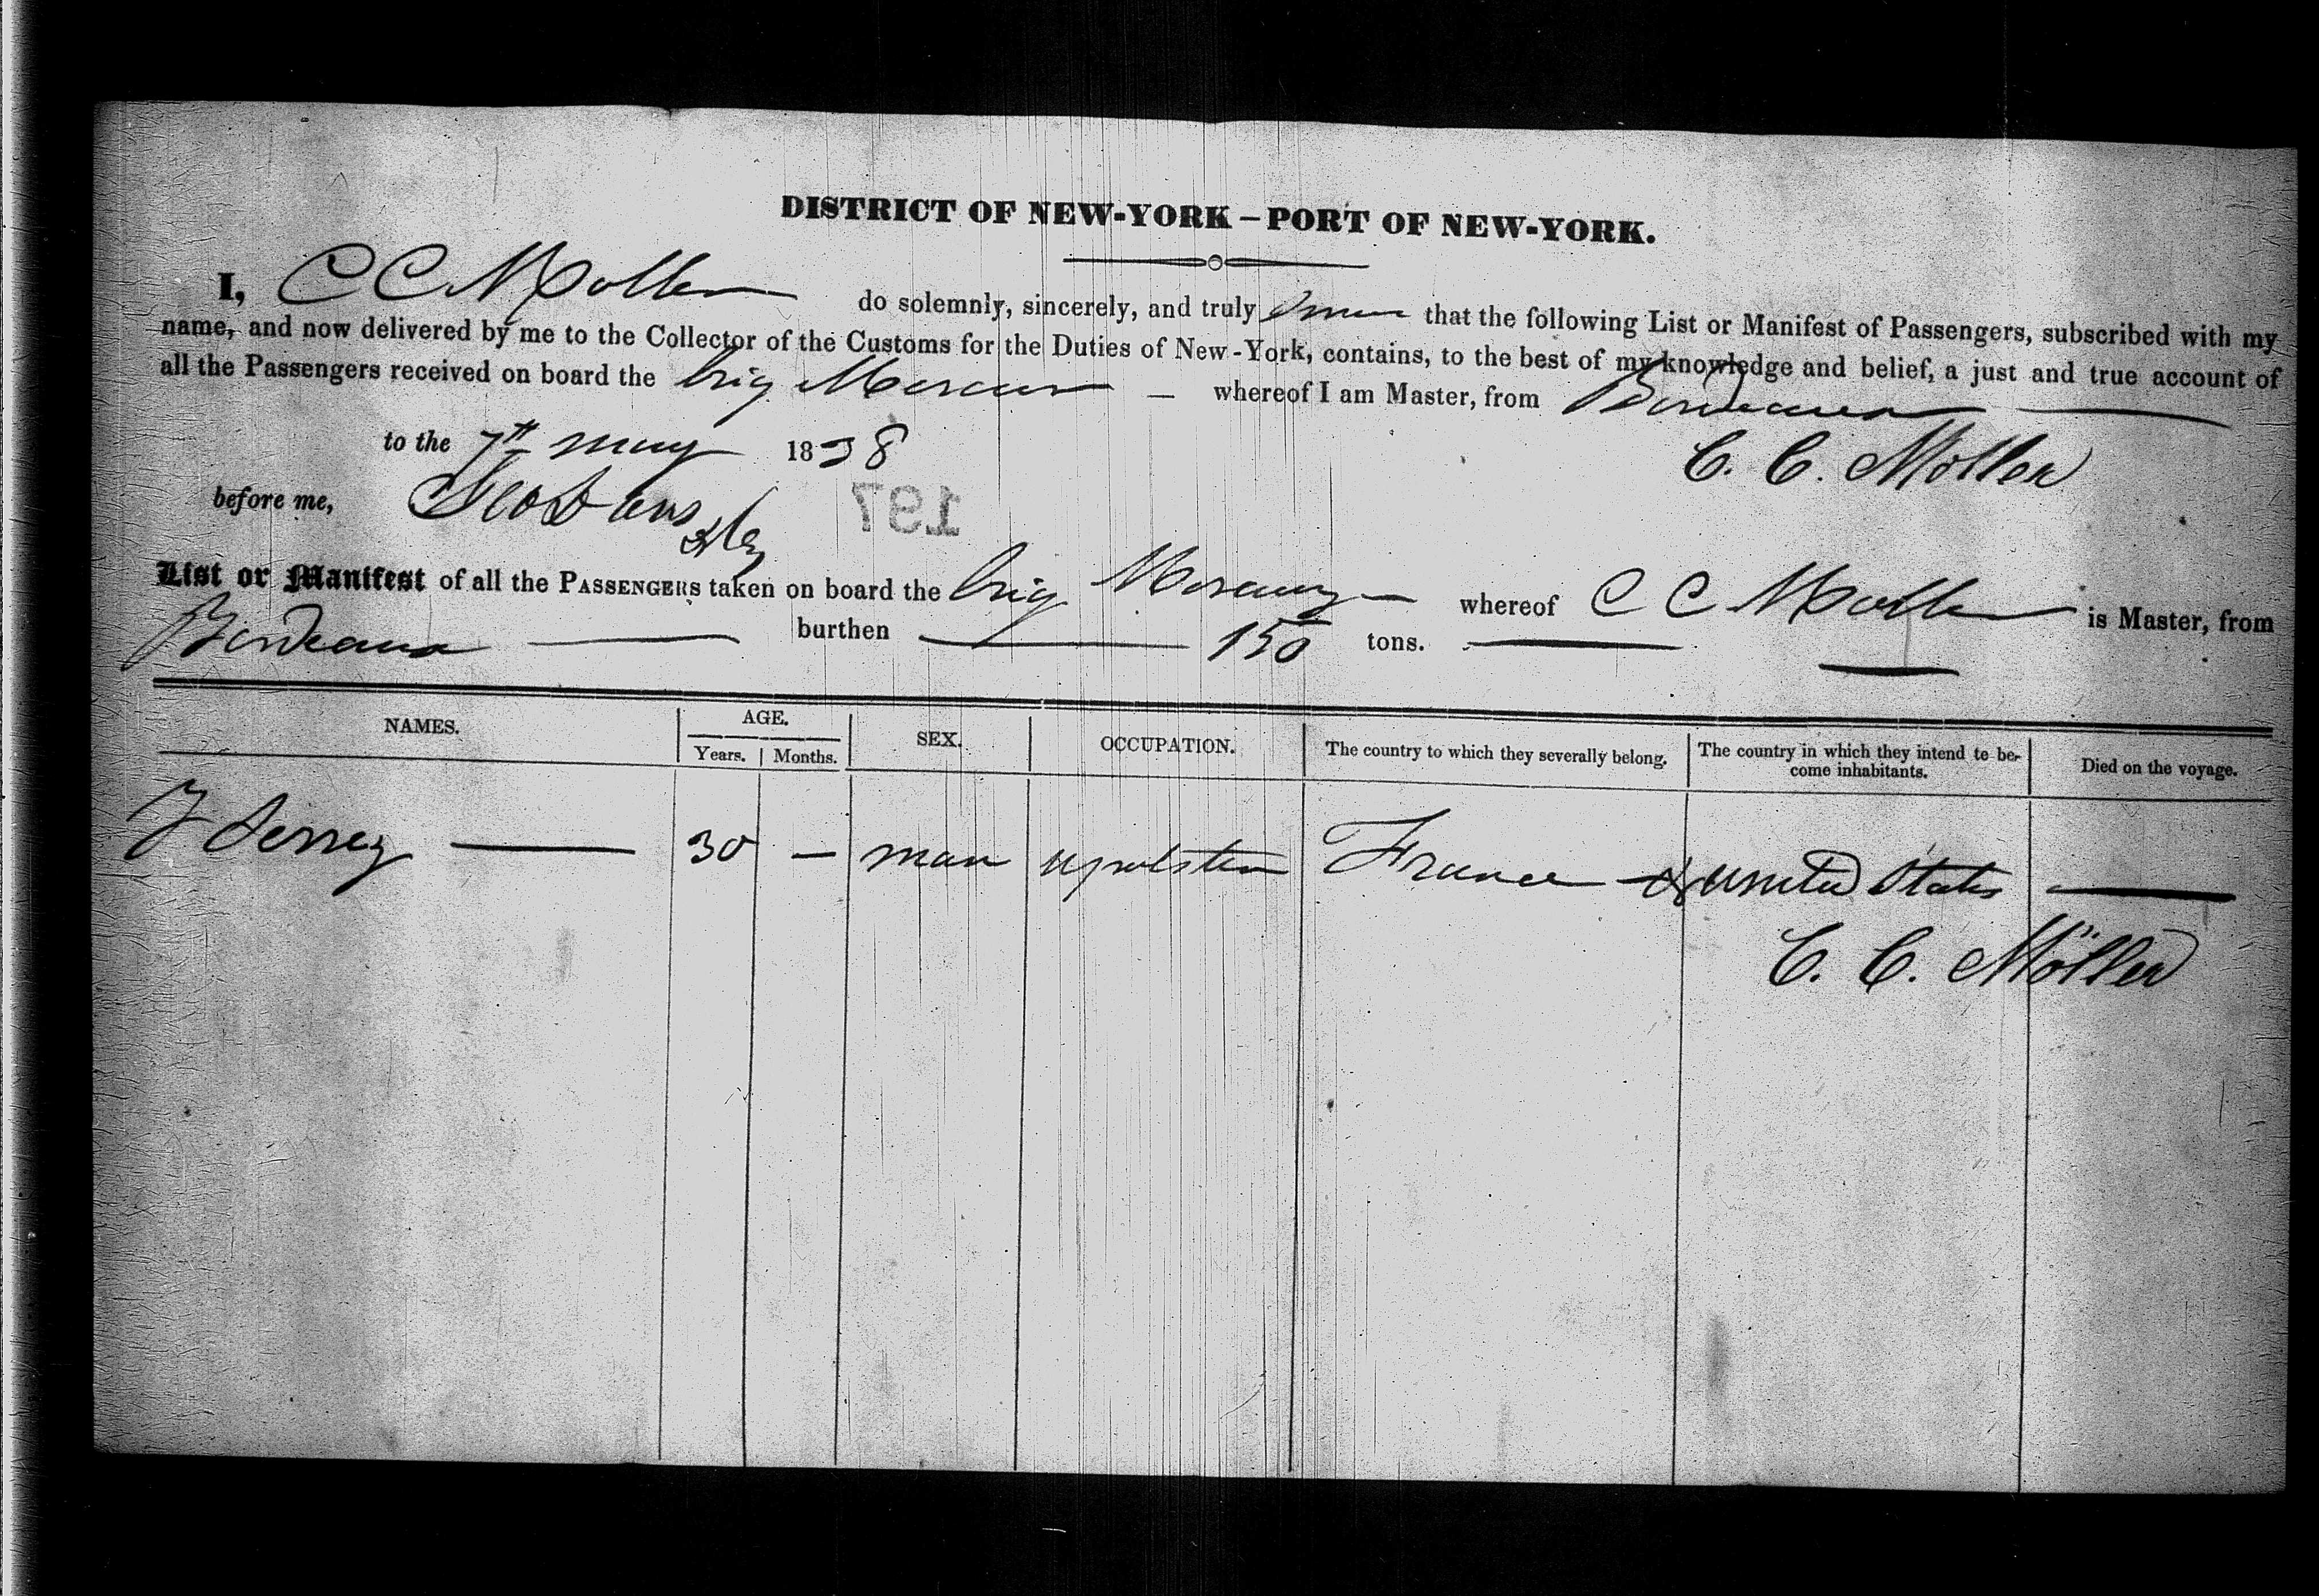 DISTRICT OF NEW-YORK – PORT OF NEW-YORK.
I, C C Moller do solemnly, sincerely, and truly swear that the following List or Manifest of Passengers, subscribed with my
name, and now delivered by me to the Collector of the Customs for the Duties of New-York, contains, to the best of my knowledge and belief, a just and true account of
all the Passengers received on board the brig Mercur — whereof I am Master, from Bordeaux
to the 7th may 1838
C. C. Möller
before me,
197
List or Manifest of all the PASSENGERS taken on board the brig Mercury whereof C C Moller is Master, from
Bordeaux burthen 150 tons.
NAMES. AGE. SEX. OCCUPATION. The country to which they severally belong. The country in which they intend to be- Died on the voyage.
Years. Months. come inhabitants.
30 — man France united States —
C. C. Möller